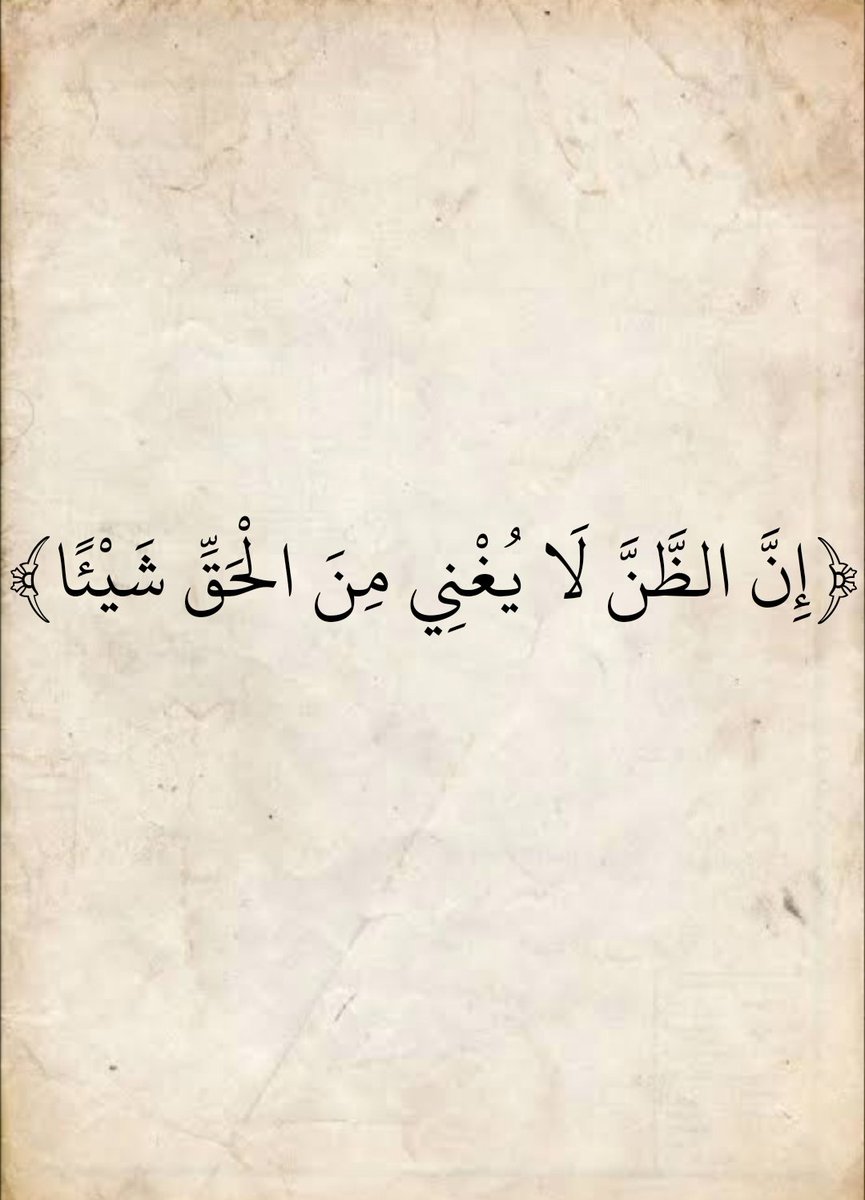 ﴿إِنَّ الظَّنَّ لَا يُغْنِي مِنَ الْحَقِّ شَيْئًا﴾